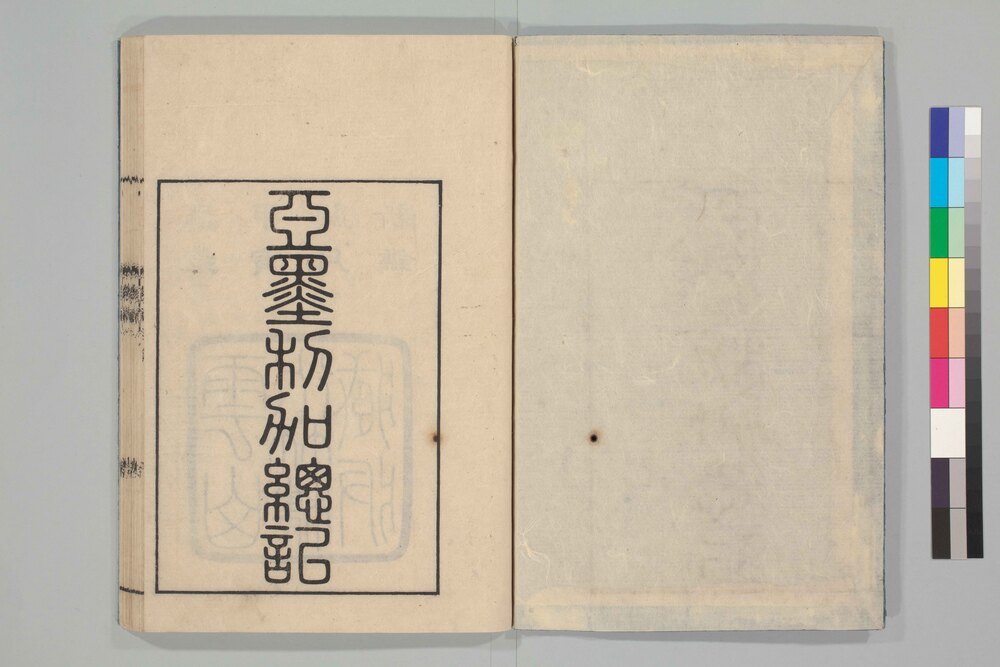 亞墨利加總記